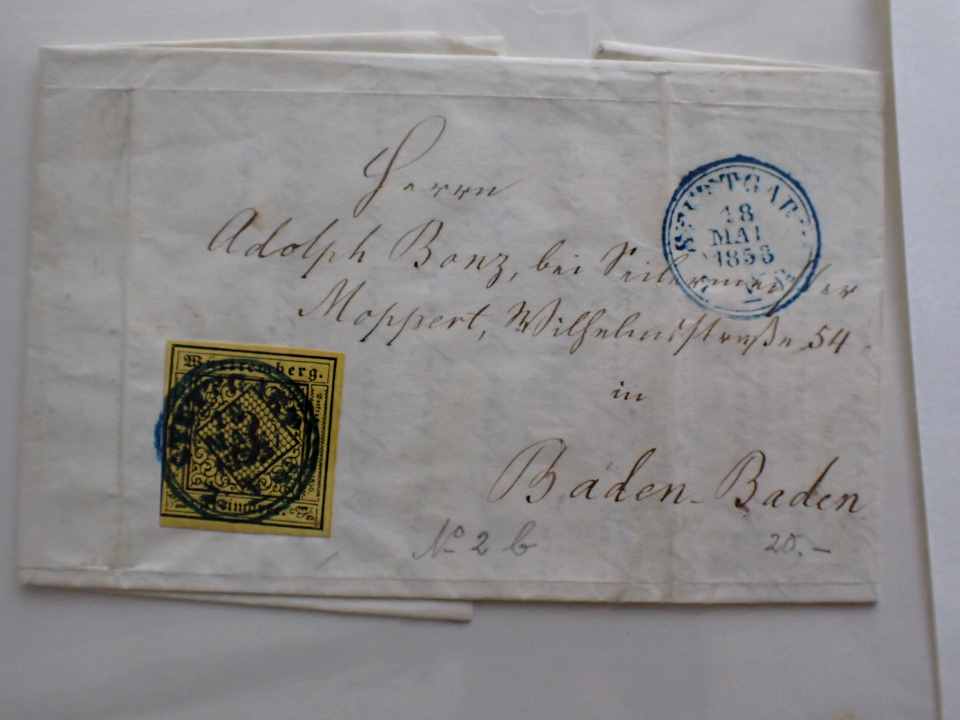 Herrn
Adolph Bonz, bei Seilermeister
Moppert, Wilhelmsstraße 54
in
Baden-Baden
STUTTGART
18
MAI
185
Württemberg.
No 2 b
20.–